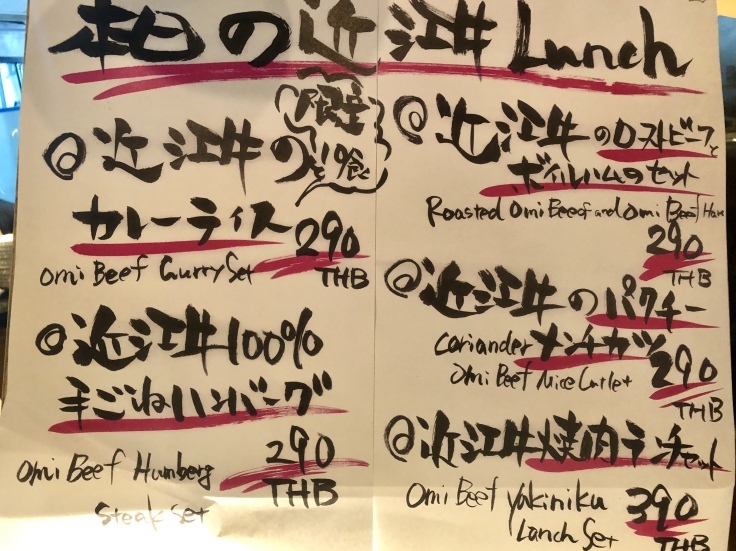 本日の近江牛 Lunch
限定
◎近江牛の
カレーライス
290
Omi Beef Curry Set
THB
◎近江牛100%
手ごねハンバーグ
290
Omi Beef Humberg
THB
Steak Set
◎近江牛のロストビーフと
ボイルハムのセット
Roasted Omi Beeof and Omi Beef Ham
290
THB
◎近江牛のパクチー
Coriander メンチカツ
Omi Beef Mice Cutlet 290
THB
◎近江牛焼肉ランチセット
Omi Beef Yakiniku 390
Lanch Set THB